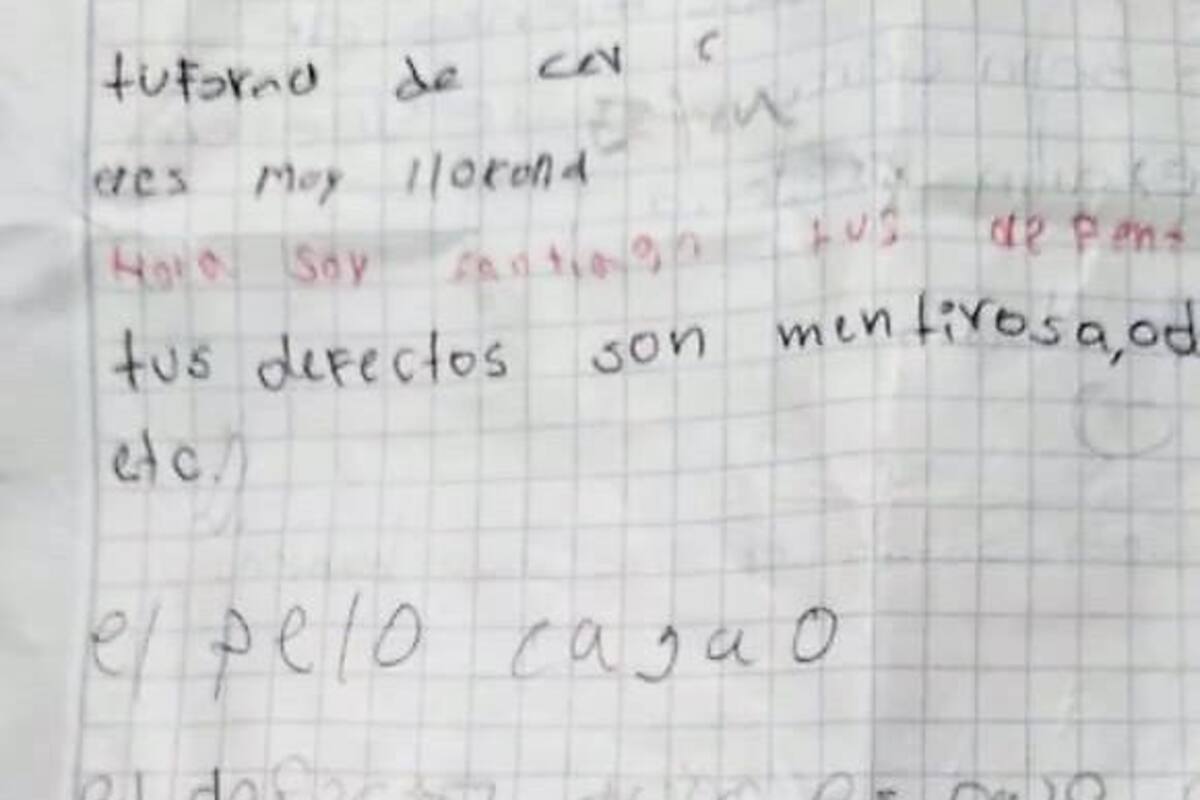 tuforma de cer
eres moy llorona
Hola soy santiago tus
tus defectos son mentirosa,od
etc.
el pelo cagao
el